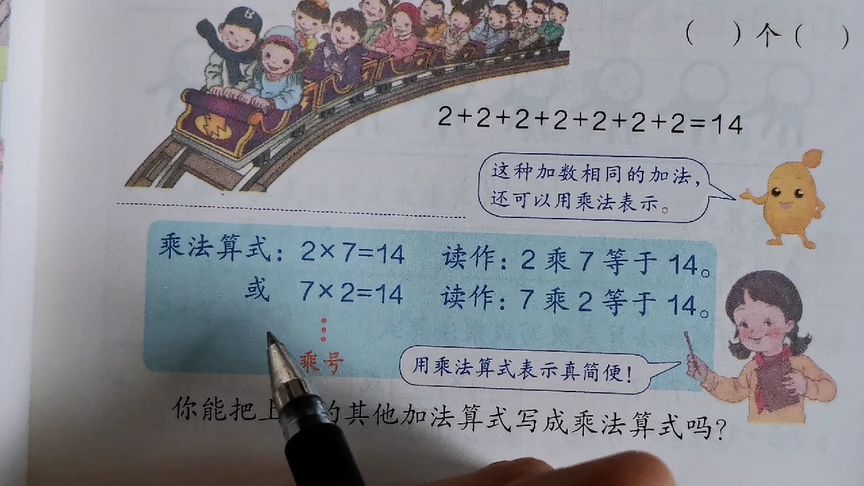 ( )个( )
2+2+2+2+2+2+2=14
这种加数相同的加法，
还可以用乘法表示。
乘法算式：2×7=14 读作：2 乘 7 等于 14。
或 7×2=14 读作：7 乘 2 等于 14。
乘号
用乘法算式表示真简便！
你能把上 的其他加法算式写成乘法算式吗？